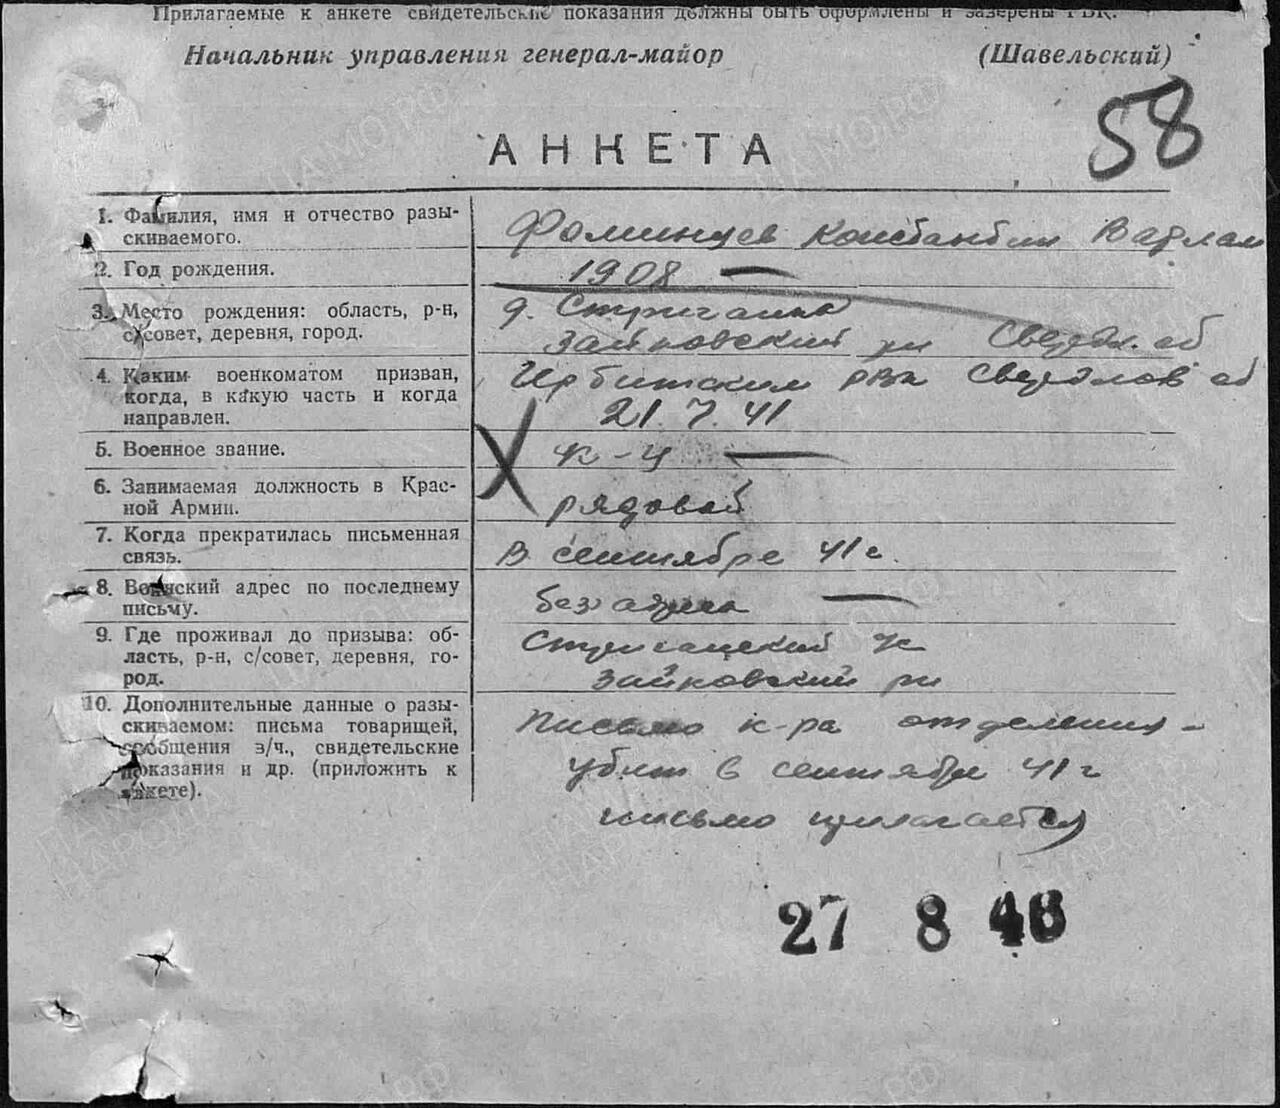 Прилагаемые к анкете свидетельские показания должны быть оформлены и заверены РВК.
Начальник управления генерал-майор (Шавельский)
58
АНКЕТА
1. Фамилия, имя и отчество разы-
скиваемого.
Фоминцев Константин Варлам
2. Год рождения.
1908 —
3. Место рождения: область, р-н,
с/совет, деревня, город.
д. Стриганка
Зайковский рн Свердл. об
4. Каким военкоматом призван,
когда, в какую часть и когда
направлен.
Ирбитским рвк Свердлов об
21.7.41
5. Военное звание.
к-ц —
6. Занимаемая должность в Крас-
ной Армии.
рядовой
7. Когда прекратилась письменная
связь.
В сентябре 41 г.
8. Воинский адрес по последнему
письму.
без адреса —
9. Где проживал до призыва: об-
ласть, р-н, с/совет, деревня, го-
род.
Стриганский
Зайковский рн
10. Дополнительные данные о разы-
скиваемом: письма товарищей,
сообщения в/ч., свидетельские
показания и др. (приложить к
анкете).
Письмо к-ра отделения -
убит в сентябре 41 г
письмо прилагается
27 8 46